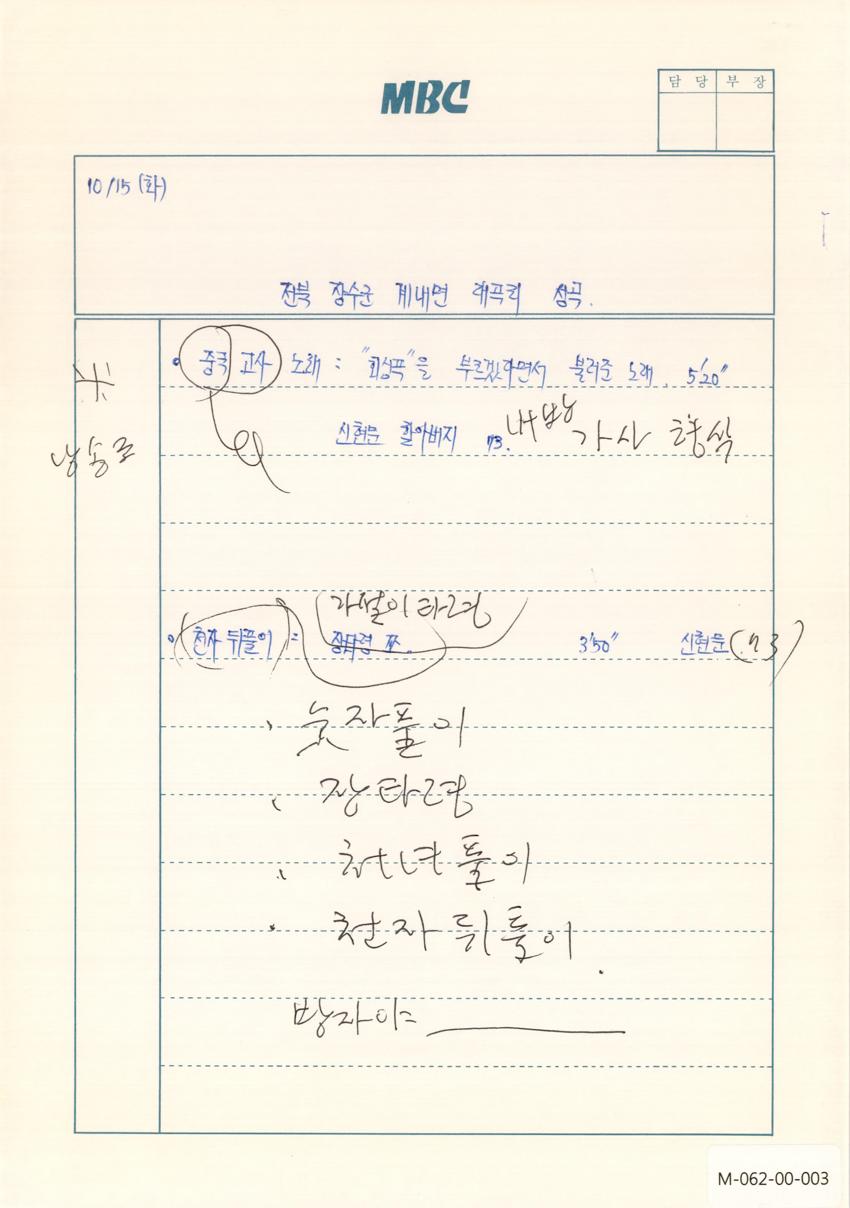 MBC
담 당 부 장
10/15(화)
전북 장수군 계내면 대곡리 성곡.
중국 고사 노래 : "회심곡"을 부르겠다면서 불러준 노래. 5'20"
신현문 할아버지 73. 내방 가사 형식
낭송조
각설이 타령
천자 뒤풀이 : 장타령 쪼. 3'50" 신현문 (73)
숫자풀이
장타령
천자 뒤풀이
방자야
M-062-00-003